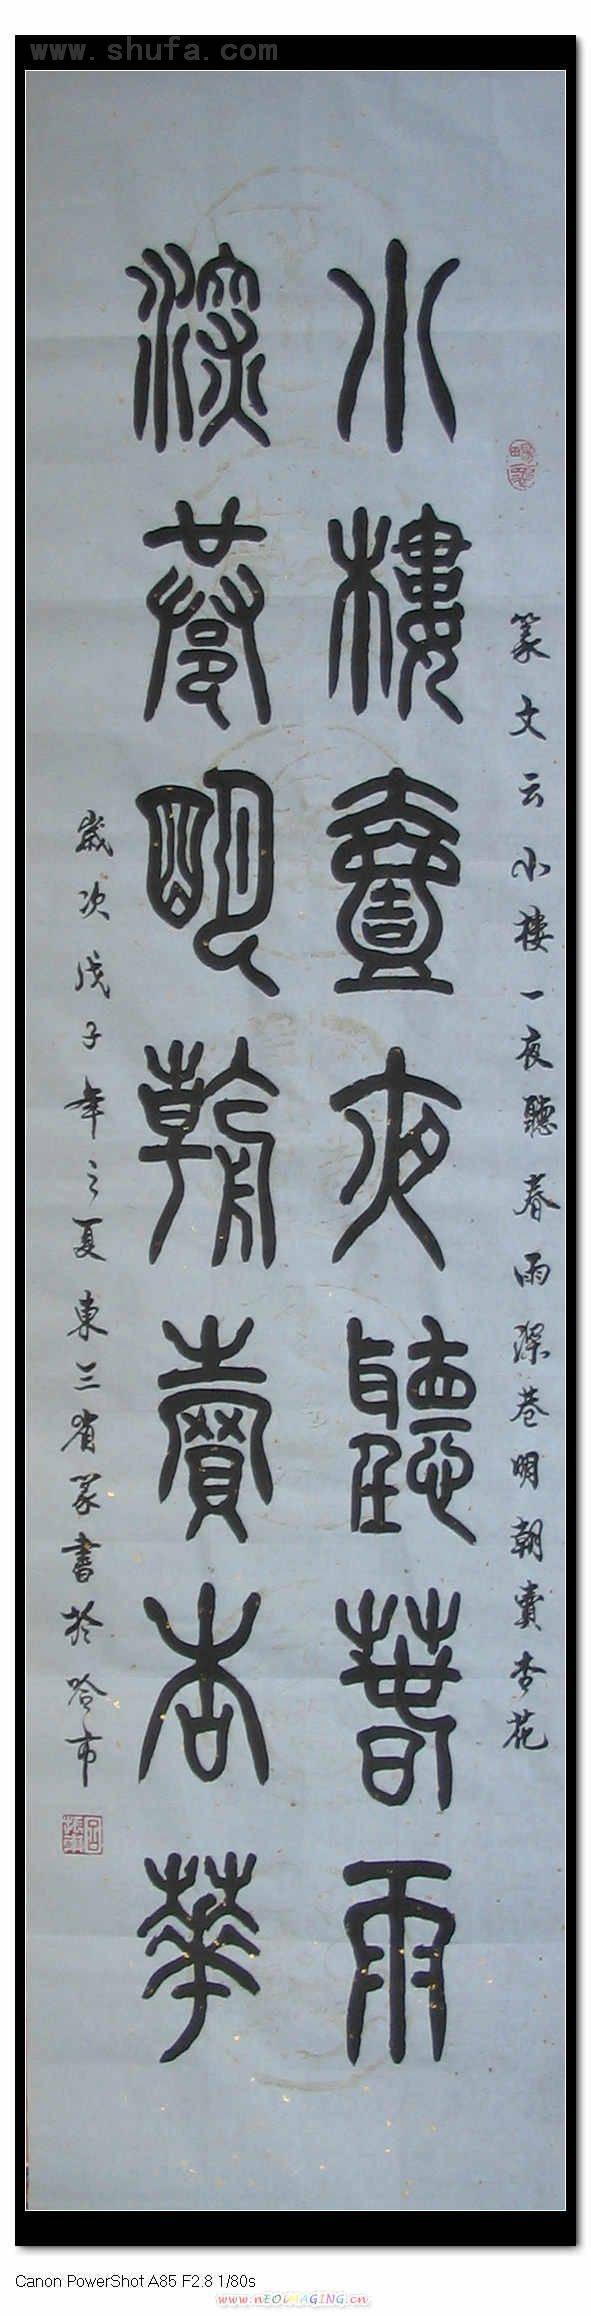 www.shufa.com
篆文云小樓一夜聽春雨深巷明朝賣杏花
小樓壹夜聽萅雨
深巷明朝賣杏華
歲次戊子年之夏東三省篆書於哈市
Canon PowerShot A85 F2.8 1/80s
www.nEOIMAGING.cn